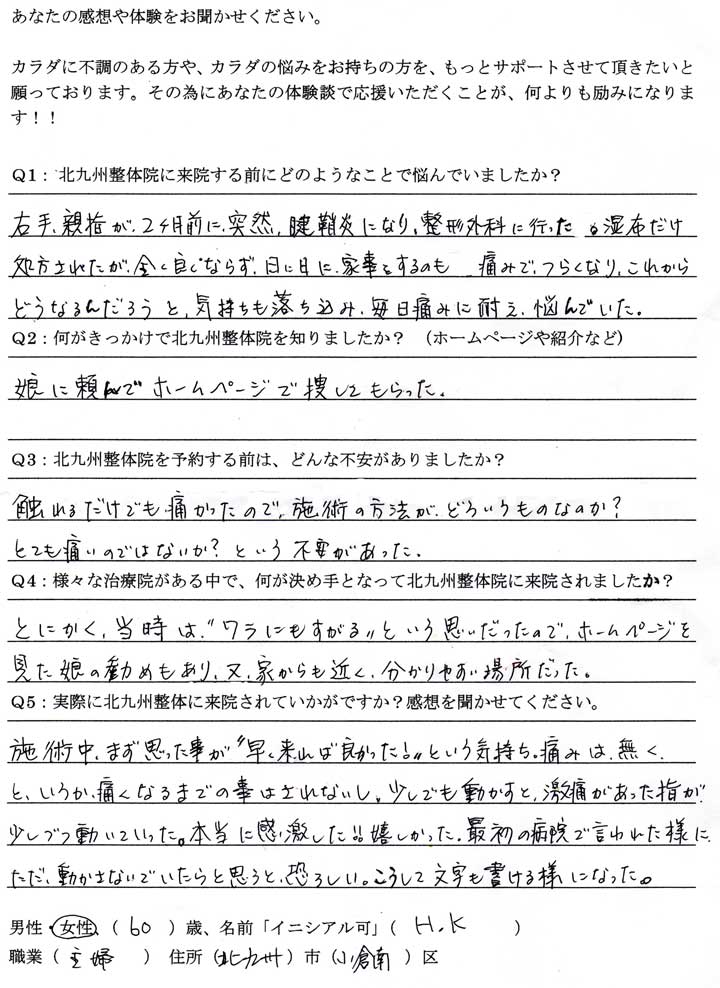 あなたの感想や体験をお聞かせください。
カラダに不調のある方や、カラダの悩みをお持ちの方を、もっとサポートさせて頂きたいと
願っております。その為にあなたの体験談で応援いただくことが、何よりも励みになりま
す！！
Q1：北九州整体院に来院する前にどのようなことで悩んでいましたか？
右手、親指が、2ヶ月前に、突然、腱鞘炎になり、整形外科に行った。湿布だけ
処方されたが、全く良くならず、日に日に、家事をするのも 痛みで、つらくなり、これから
どうなるんだろうと、気持ちも落ち込み、毎日痛みに耐え、悩んでいた。
Q2：何がきっかけで北九州整体院を知りましたか？ （ホームページや紹介など）
娘に頼んでホームページで捜してもらった。
Q3：北九州整体院を予約する前は、どんな不安がありましたか？
触れるだけでも痛かったので、施術の方法が、どういうものなのか？
とても痛いのではないか？という不安があった。
Q4：様々な治療院がある中で、何が決め手となって北九州整体院に来院されましたか？
とにかく、当時は、〝ワラにもすがる〟という思いだったので、ホームページを
見た娘の勧めもあり、又、家からも近く、分かりやすい場所だった。
Q5：実際に北九州整体に来院されていかがですか？感想を聞かせてください。
施術中、まず思った事が〝早く来れば良かった！〟という気持ち。痛みは、無く、
と、いうか、痛くなるまでの事はされないし、少しでも動かすと、激痛があった指が
少しづつ動いていった。本当に感激した!!嬉しかった。最初の病院で言われた様に、
ただ、動かさないでいたらと思うと、恐ろしい。こうして文字も書ける様になった。
男性・女性、（ 60 ）歳、名前「イニシアル可」（ H.K ）
職業（ 主婦 ） 住所（北九州）市（小倉南）区